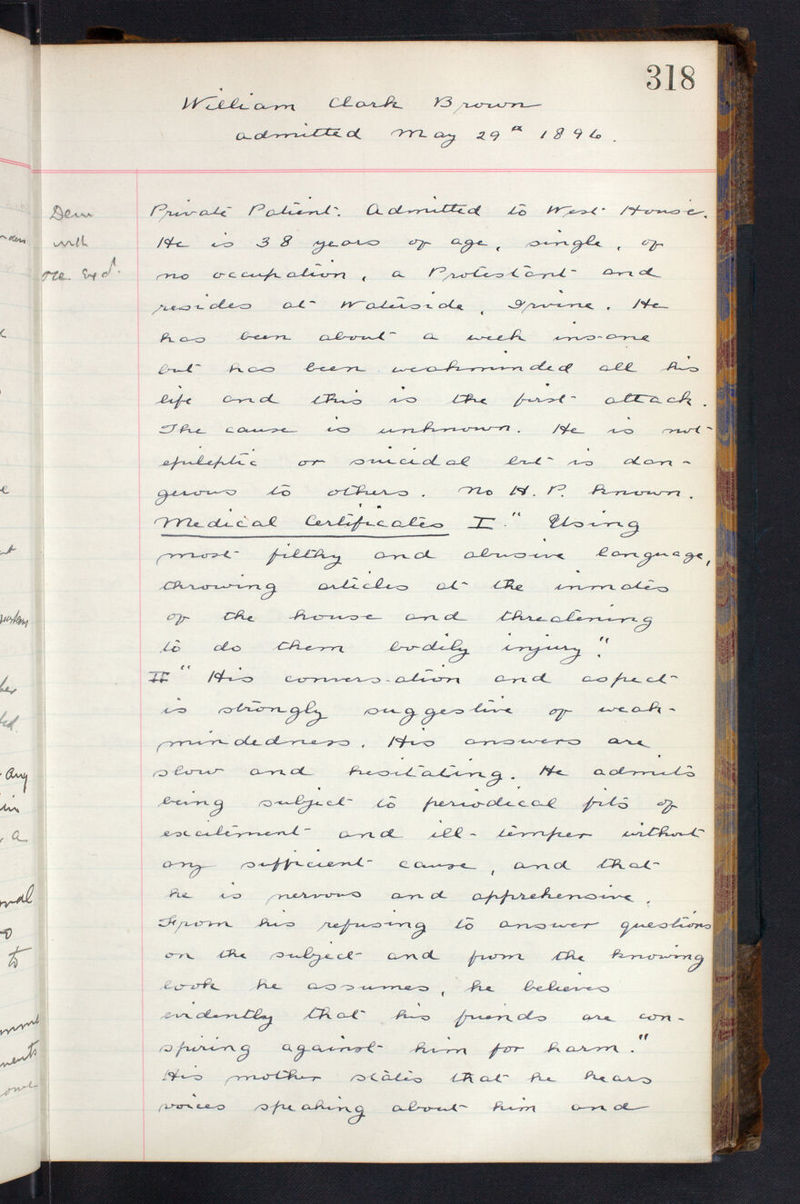 318
William Clark Brown
admitted May 29th 1896.
Dem
with
Private Patient. Admitted to West House.
He is 38 years of age, single, of
no occupation, a Protestant and
resides at Waterside, Irvine. He
has been about a week insane
but has been weakminded all his
life and this is the first attack.
The cause is unknown. He is not
epileptic or suicidal but is dan-
gerous to others. No H.P. known.
Medical Certificates I. "Using
most filthy and abusive language,
throwing articles at the inmates
of the house and threatening
to do them bodily injury".
II "His conversation and aspect
is strongly suggestive of weak-
mindedness. His answers are
slow and hesitating. He admits
being subject to periodical fits of
excitement and ill-temper without
any sufficient cause, and that
he is nervous and apprehensive.
From his refusing to answer questions
on the subject and from the knowing
look he assumes, he believes
evidently that his friends are con-
spiring against him for harm."
His mother states that he hears
voices speaking about him and